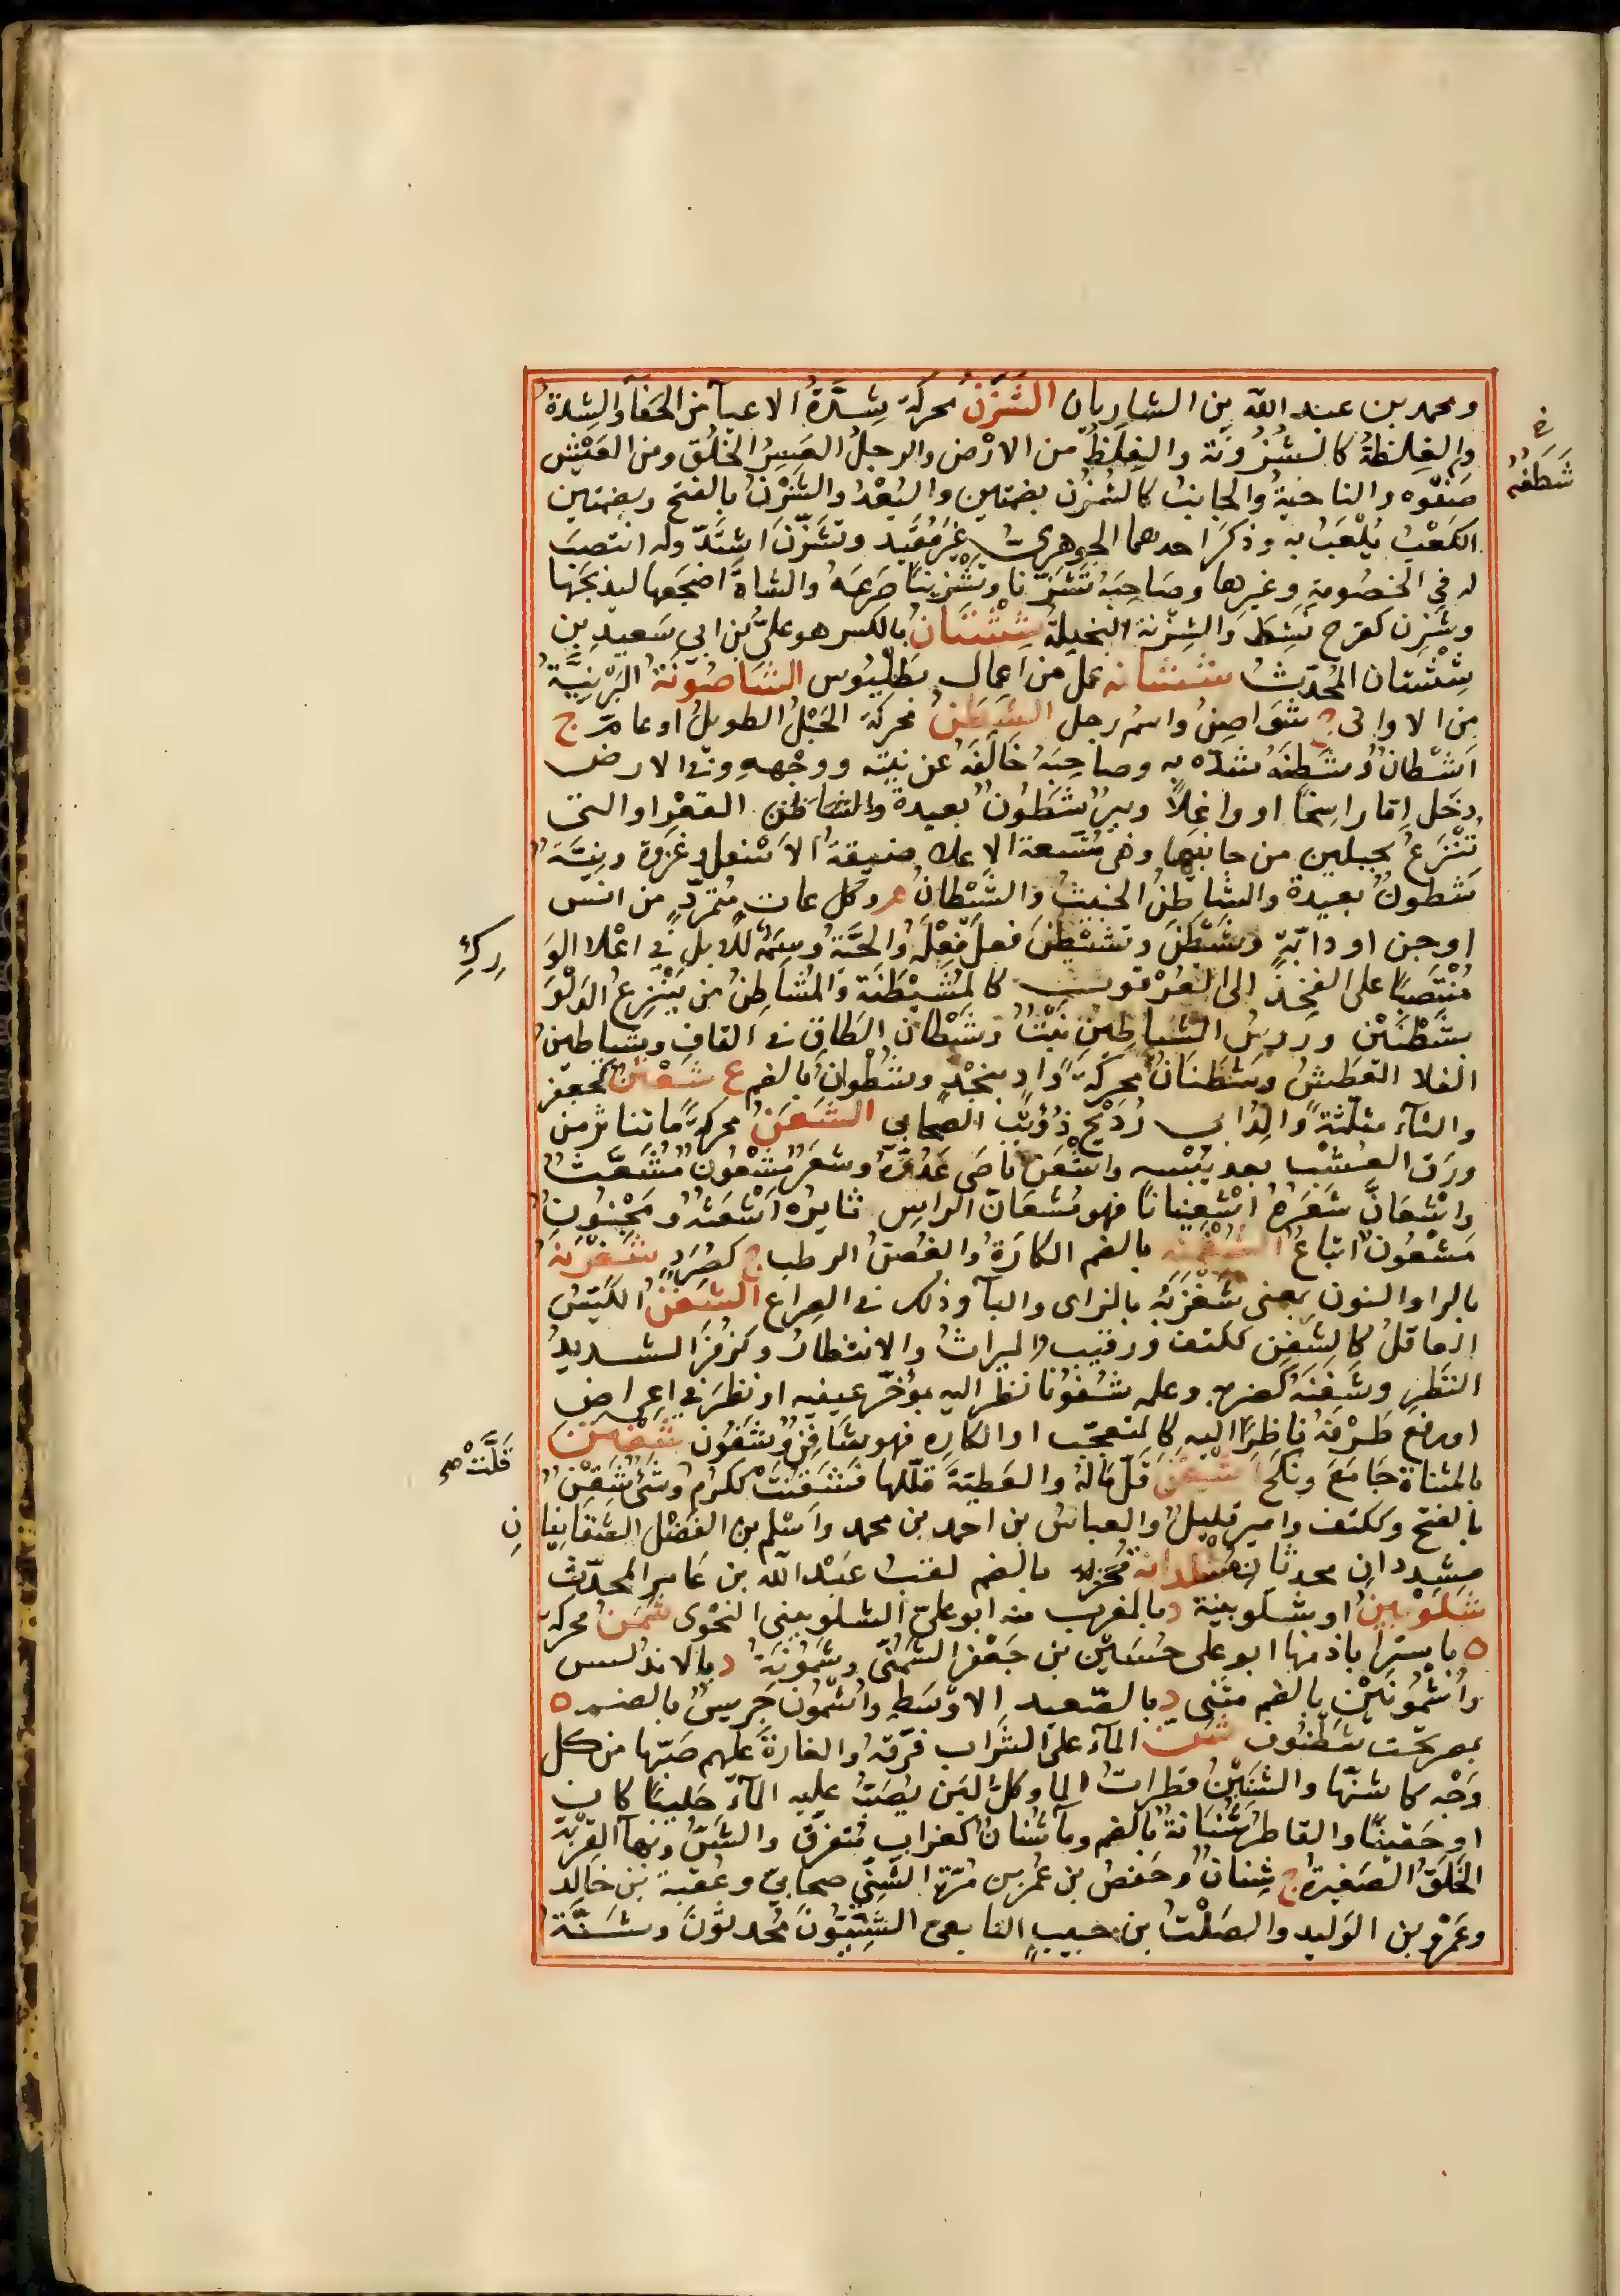 ومحمد بن عبد الله بن الشاريان الشَّزَنُ محركة شِدَّةُ الاعيآء من الحفآ والشدة
والغِلظةُ كالشُّزُونَة والغِلَظُ من الارْض والرجلُ العَسِرُ الخُلُقِ ومن العَيْش
شَظَفُه
صَفْوه والناحيةُ والجانبُ كالشُّزُن بضمتين والبُعْدُ والشَّزْنُ بالفتح وبضمتين
الكَعْبُ يُلْعَبُ به وذكرَ احدهما الجوهريُّ غيرَ مُقَيد وتَشَزَّنَ اشتَدَّ وله انتصبَ
له في الخصُومةِ وغيرها وصَاحبَه تَشَزُّنا وتَشْزِينًا صَرَعَهُ والشاةَ اضجَعها ليذبَحَها
وشَزِن كفرح نَشِطَ والشَّزْنة البخيلةُ شِشْتَانُ بالكسر هو عليُّ بن ابي سَعيدِ بنِ
شِشْتان المُحدِّثُ ششانه عمل من اعمال بَطَلْيَوس الشاصُونَةُ البَرْنِيَّةُ
من الاواني ج شَوَاصِنُ واسم رجل الشَّطَنُ محركة الحَبْلُ الطويلُ او عامّ ج
اَشْطانٌ وشَطَنَهُ شدّه به وصاحِبَهُ خَالَفَه عن نيته ووجْههِ وفي الارض
دخَل اِمّا راسِخًا او واغِلاً وبيرٌ شَطُونٌ بعيدةُ القعر او التي
تنْزَعُ بحبلين من جانبَيها وهي مُتَّسعة الاعلى ضيقةُ الاَسْفل وغزوة ونِيَّةٌ
شَطونٌ بعيدة والشاطِنُ الخبيثُ والشَّيْطانُ م وكل عاتٍ مُتمَرِّدٍ من انس
او جن او دابّةٍ وشَيْطَنَ وتشَيْطَنَ فعلَ فِعْلَهُ والحَيَّةُ وسِمَةٌ للابل في اعْلا الوَ
رِكِ
مُنْتَصِبًا على الفخِذ الى العُرقوب كالمُشَيْطَنَة والمُشَاطِنُ من يَنْزِعُ الدَلْوَ
بشَطَنَيْن ورُوسُ الشياطينَ نَبْتٌ وشَيْطان الطاق في القافِ وشياطين
الفلا العَطَشُ وشَطَنَانُ محركةً وادٍ بنجْدٍ وشُطْوانُ بالضم ع شَعْثَن كجعفر
والثآء مثلّثة والدابي رُدَيْحِ ذُؤَيْب الصحابي الشَّعَنُ محركةً ما تناثر من
ورَق العُشْب بعد يُبْسه واشْعَنَ ناصَى عَدُوَّهُ وشعَرٌ مَشْعُونٌ مُشَعَّثٌ
واشْعَانَّ شعَرهُ اشْعِينانًا فهو مُشْعَانُّ الراس ثايرُه اَشْعَثُه ومَجْنُونٌ
مَشْعُونٌ اتباعٌ الشُّغْنَة بالضم الكارَةُ والغُصْنُ الرطب ج كصُرَدٍ شَغْرَنه
بالرا والنون بمعنى شَغْزَبَه بالزاي والبآ وذلك في الصراع الشَّفْنُ الكَيِّسُ
العاقلُ كالشَّفِنِ ككتف ورقيب الميراثُ والانتظارُ وكزُفَرَ الشديدُ
النظَرِ وشَفَنَهُ كضربه وعلمه شُفُونًا نظَر اليه بمؤخّر عينيه او نظرَ في اعراض
او رفع طَرْفهُ ناظِرًا اليه كالمتعجِّب او الكارِه فهو شَافِنٌ وشَفُون شَفْتَنَ
بالمثناة جَامَعَ ونكحَ اشْقَنَ قَلَّ مَالهُ والعَطِيَّةَ قلّلها فشقَنَتْ ككرُم وشَيءٌ شَقْنٌ
قَلَّتْ صح
بالفتح وككتف وامير قليل والعباسُ بن احمد بن محمد واَسْلم بن الفَضْل الشقانِيا
نِ
مشددان محدثان بالضم لقبُ عَبْد الله بن عَامر المحدّث
شَلَوْبينُ او شلَوبينية د بالمغرب منه ابو علىّ الشلوبينى النحْوى شَمَنُ محركة
ه باستراباذ منها ابو على حُسَيْن بن جَعْفر الشَمَنىّ وشَمُونَةُ د بالاندلس
واُشْمُونَيْن بالضم مثنى د بالصّعيد الاوسَطِ واُشْمُون جُرَيْسٌ بالضم ه
بمصر تحت شَطَّنُوف شَنَّ المآءَ على الشَّراب فَرّقهُ والغارةَ عَليهم صَبّها من كل
وَجْه كاشَنّها والشَّنينُ قَطرَاتُ الما وكلُّ لبَن يُصَبُّ عليه المآءُ حَليبًا كان
او حَقينًا والقاطرُ شُنَانةٌ بالضم ومآء شُنانٌ كغراب مُتفرِق والشَّنُّ وبهآ القِرْبَة
الخَلَقُ الصَغيرةُ ج شِنانٌ وحَفصُ بن عُمر بن مُرّة الشَنّيّ صحابيّ وعُقبَة بن خَالِد
وعَمْرو بن الوَليد والصَلْتُ بن حبيبٍ التابعى الشَّنِّيُّونَ مُحدِثونَ وشَنَّة